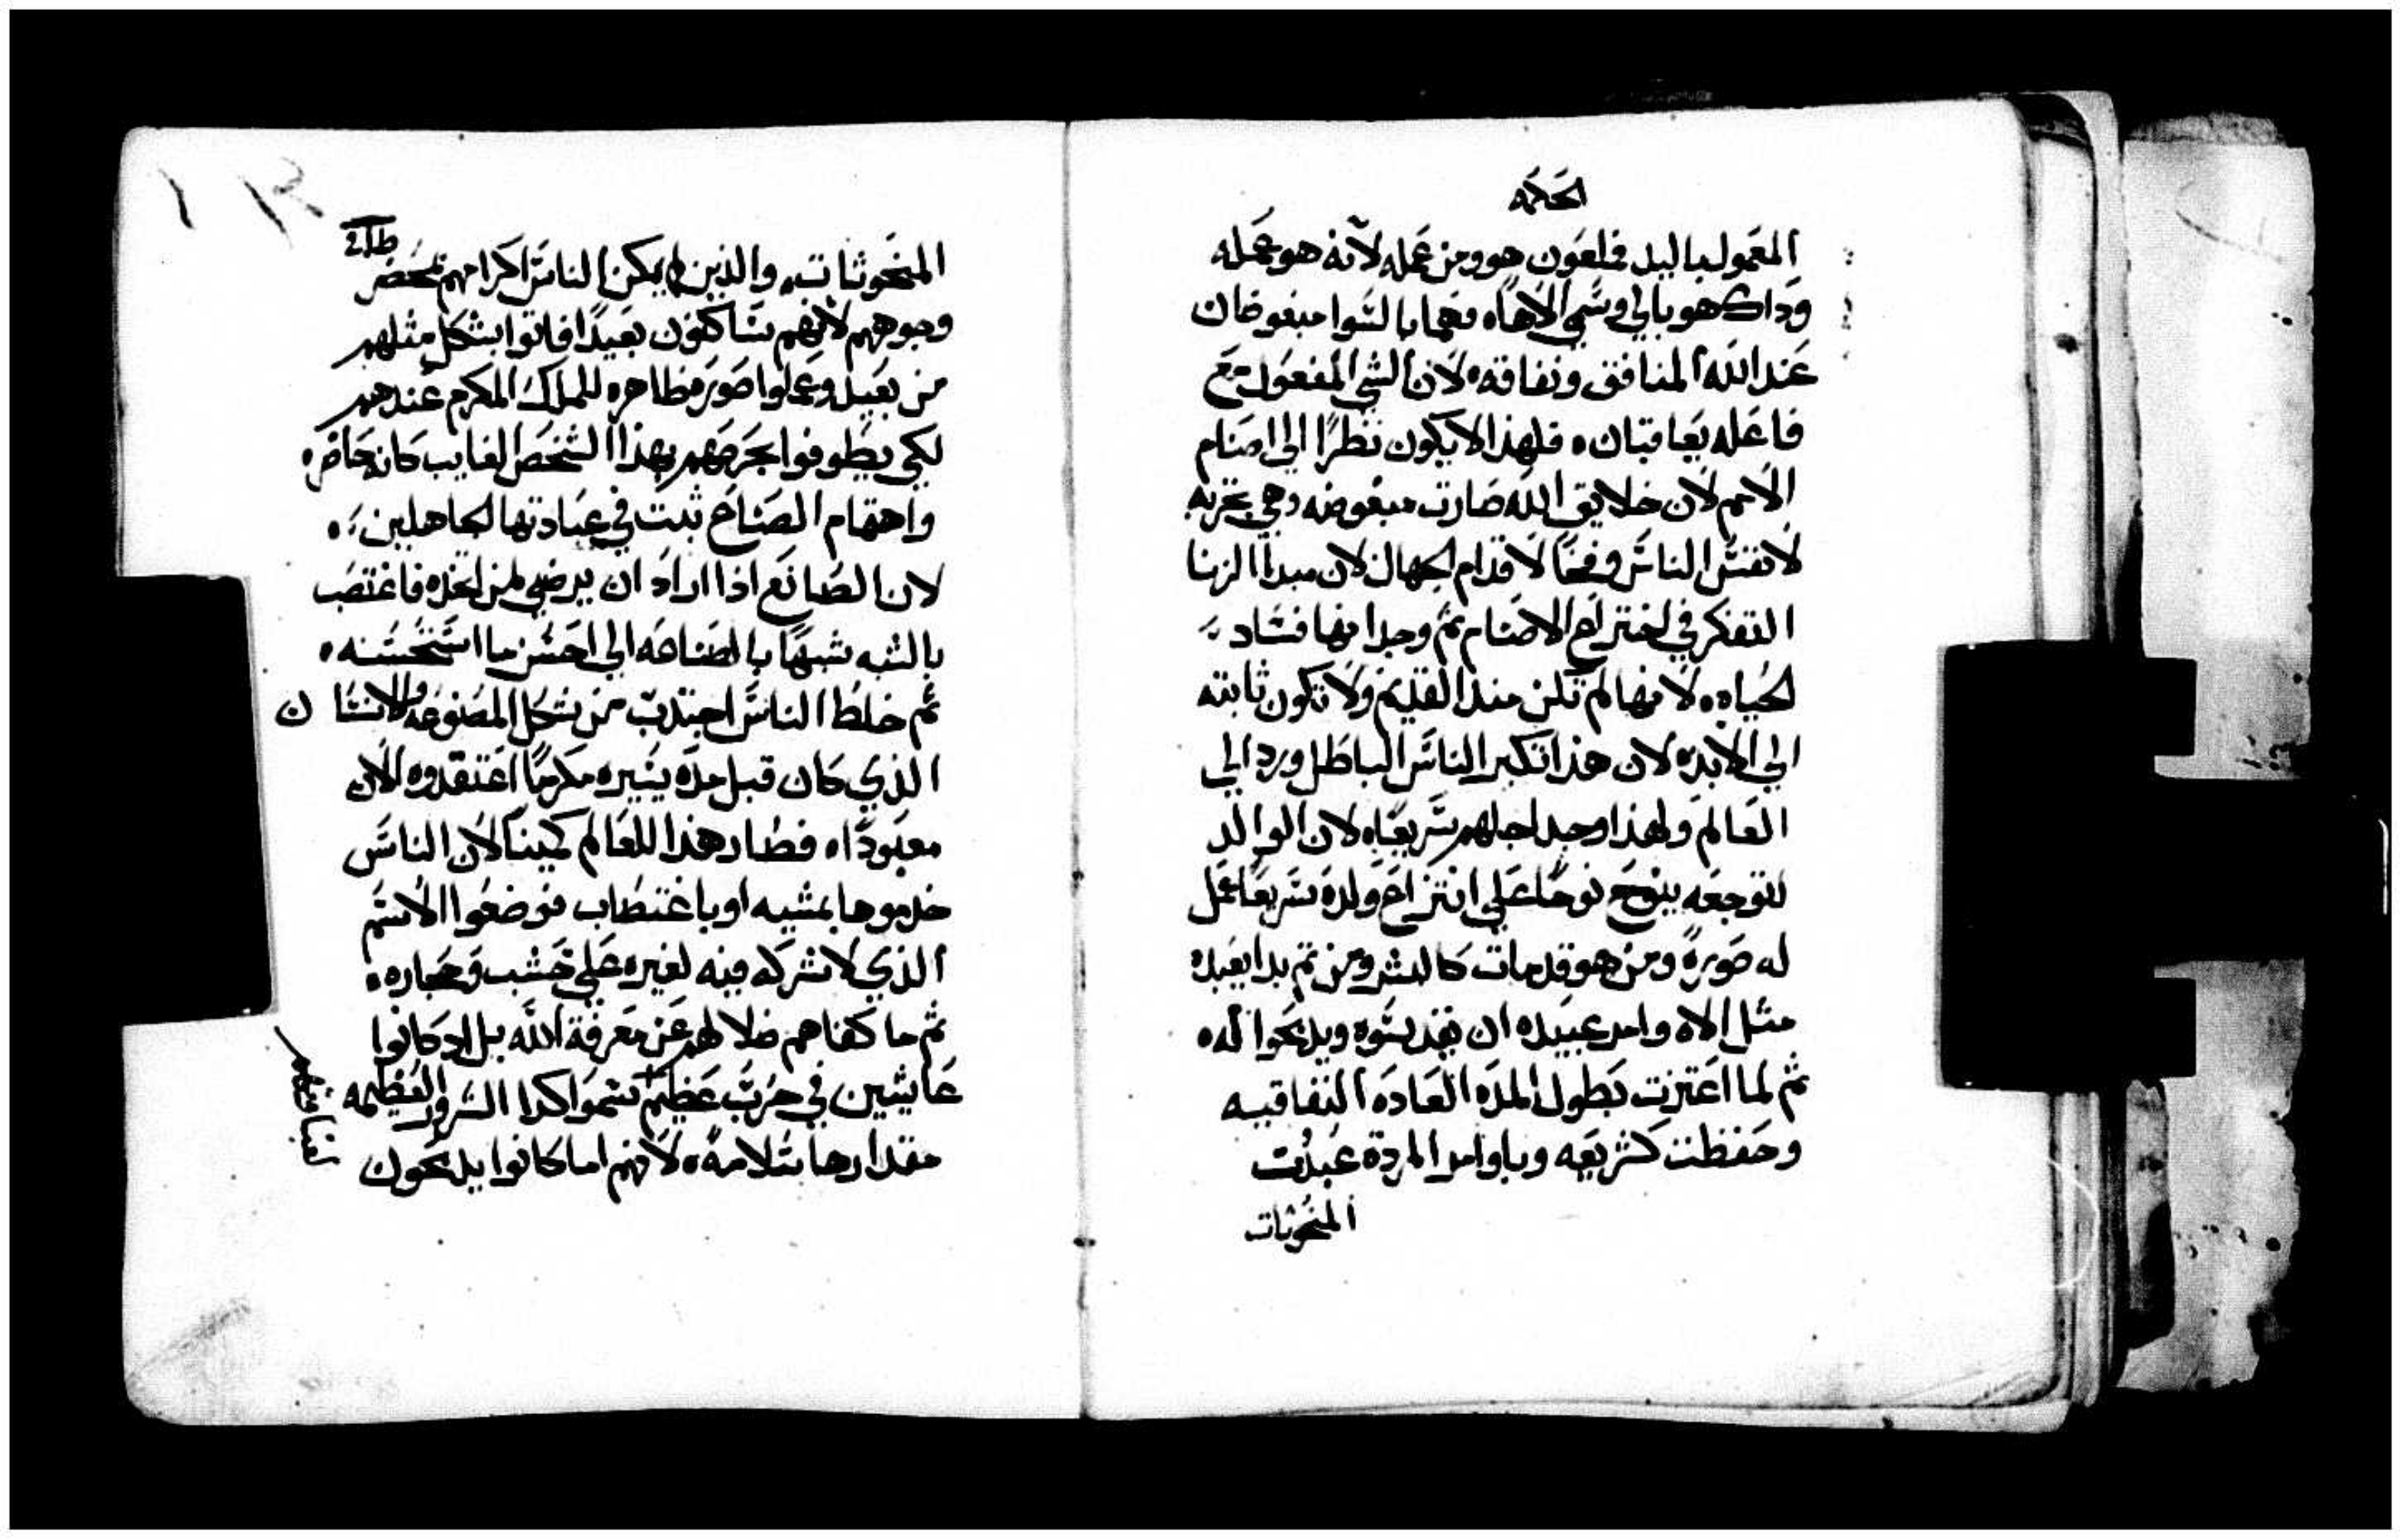 الحكمه
المعمول باليد فملعون هو ومن عمله لانه هو عمله
وذاك هو بالي وسمي الاهاً، فهما بالسوا مبغوضان
عند الله المنافق ونفاقه، لان الشي المفعول مع
فاعله يعاقبان، فلهذا لا يكون نظرًا الي اصنام
الامم لان خلايق الله صارت مبغوضه وهي تجربه
لانفس الناس وفخًا لاقدام الجهال لان مبدا الزنا
التفكر في اختراع الاصنام ثم وجدانها فساد
الحياه، لانها لم تكن منذ القديم ولا تكون ثابته
الي الابد، لان هذا تكبر الناس الباطل ورد الي
العالم ولهذا وجد اجلهم سريعًا، لان الوالد
لتوجعه ينوح نوحًا علي انتزاع ولده سريعًا عمل
له صورةً ومن هو قد مات كالبشر ومن ثم بدا يعبده
مثل الاه وامر عبيده ان يقدسوه ويدبحوا له،
ثم لما اعتزت بطول المدة العادة النفاقيه
وحفظت كشريعه وباوامر المردة عبدت
المنحوثات
المنحوثات، والذين لم يمكن الناس اكرامهم بمحضر
وجوههم لانهم ساكنون بعيدًا فاتوا بشكل مثلهم
من بعيد وعملوا صور مظاهره للملك المكرم عندهم
لكي يطوفوا بحرصهم بهذا الشخص الغايب كانه حاضره
واهتمام الصناع ثبت في عبادتها الجاهلين،
لان الصانع اذا اراد ان يرضي لمن اتخذه فاغتصب
بالشبه شبهًا بالصناعه الي احسن ما استحسنه،
ثم خلط الناس اجتدب من شكل المصنوعه والانسان
الذي كان قبل مده يسيره مكرمًا اعتقدوه الان
معبودًا، فصار هذا للعالم كمينًا لان الناس
خدموها بمشيه او باغتصاب فوضعوا الاسم
الذي لا شركه فيه لغيره علي خشب وحجاره،
ثم ما كفاهم ضلالهم عن معرفة الله بل اد كانوا
عايشين في حرب عظيم سموا كدا الشرور العظيمه
مقدارها سلامةً، لانهم اما كانوا يدبحون